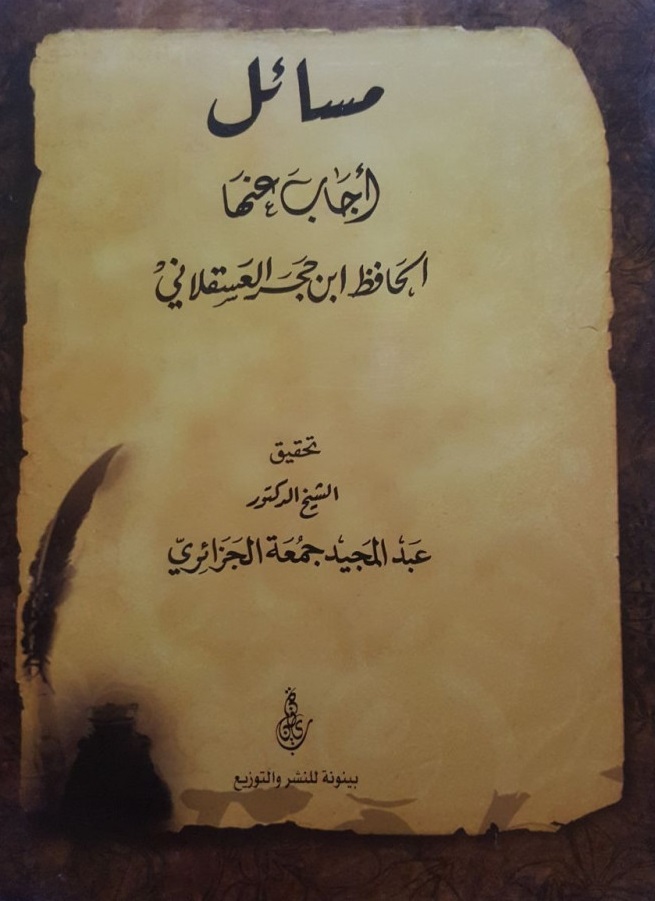 مسائل
أجاب عنها
الحافظ ابن حجر العسقلاني
تحقيق
الشيخ الدكتور
عبد المجيد جمعة الجزائري
بينونة للنشر والتوزيع